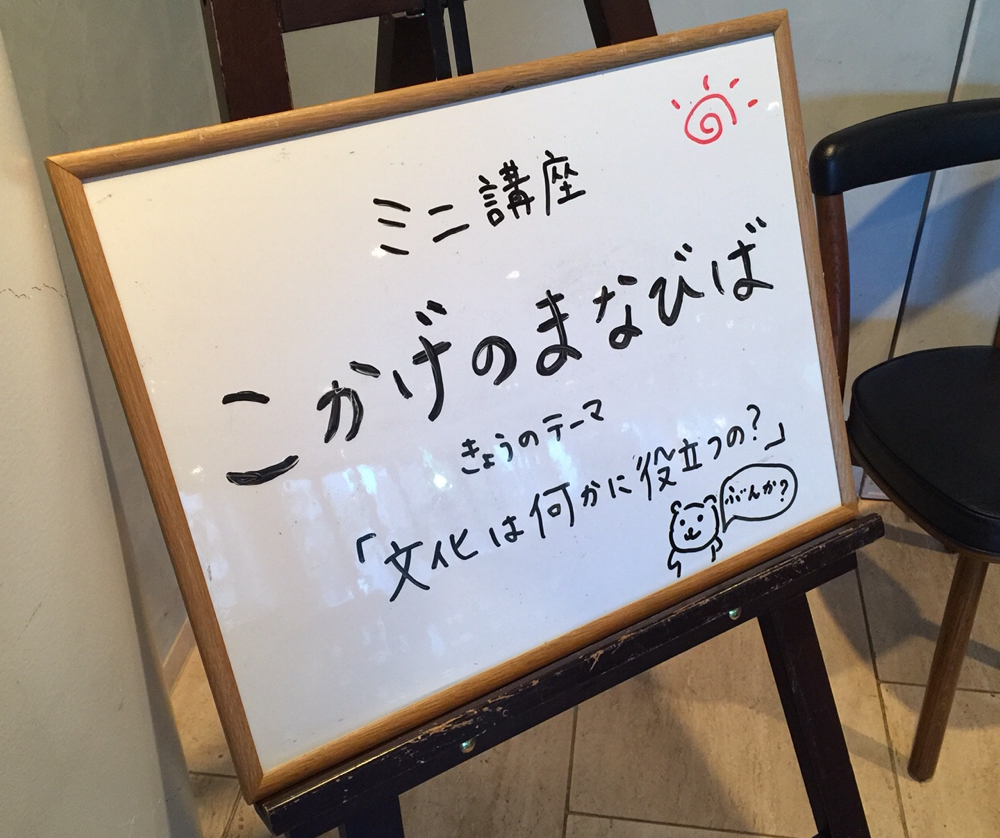 ミニ講座
こかげのまなびば
きょうのテーマ
「文化は何かに役立つの？」
ぶんか？